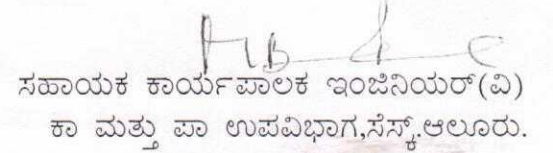 ಸಹಾಯಕ ಕಾರ್ಯಪಾಲಕ ಇಂಜಿನಿಯರ್(ವಿ)
ಕಾ ಮತ್ತು ಪಾ ಉಪವಿಭಾಗ,ಸೆಸ್ಕ್.ಆಲೂರು.